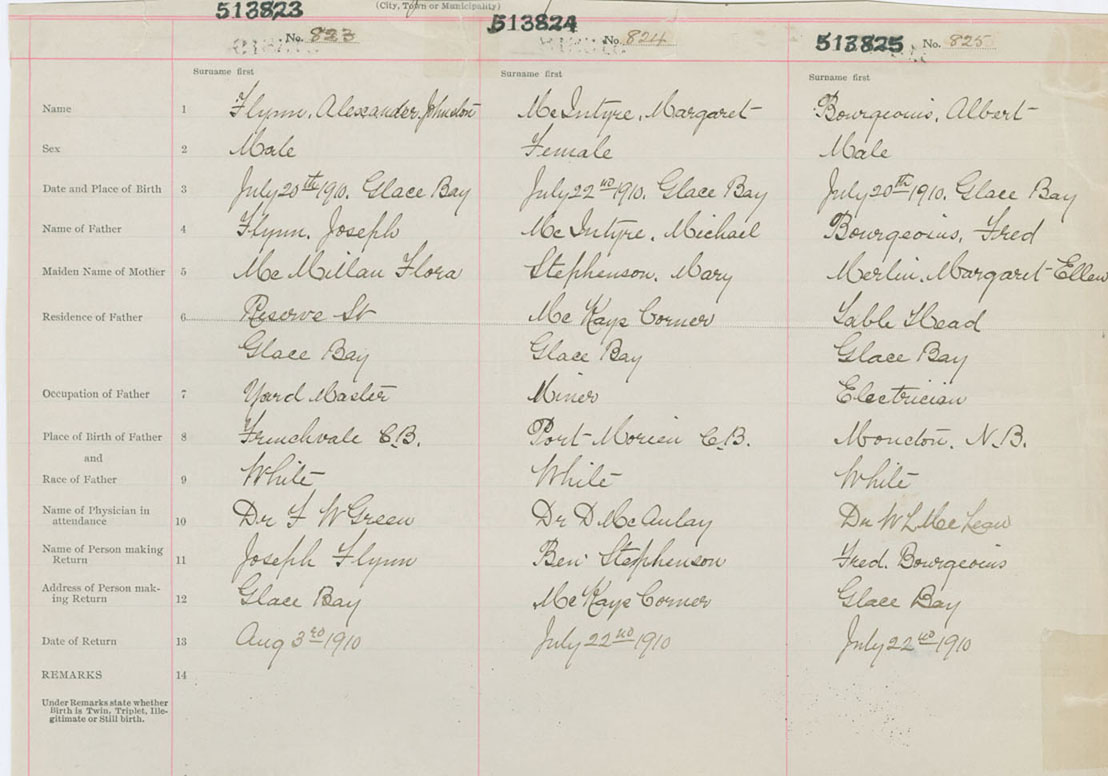 (City, Town or Municipality)
513823 513824
No. 823 No. 824 513825 No. 825
Surname first Surname first Surname first
Name 1 Flynn, Alexander Johnston McIntyre, Margaret Bourgeouis, Albert
Sex 2 Male Female Male
Date and Place of Birth 3 July 20th 1910. Glace Bay July 22nd 1910. Glace Bay July 20th 1910. Glace Bay
Name of Father 4 Flynn, Joseph McIntyre, Michael Bourgeouis, Fred
Maiden Name of Mother 5 McMillan Flora Stephenson, Mary Merlin, Margaret Ellen
Residence of Father 6 Reserve St McKays Corner Sable Head
Glace Bay Glace Bay Glace Bay
Occupation of Father 7 Yard Master Miner Electrician
Place of Birth of Father 8 Frenchvale C.B. Port Morien C.B. Moncton, N.B.
and
Race of Father 9 White White White
Name of Physician in
attendance 10 Dr F W Green Dr D McAulay Dr W L MacLean
Name of Person making
Return 11 Joseph Flynn Ben Stephenson Fred. Bourgeouis
Address of Person mak-
ing Return 12 Glace Bay McKays Corner Glace Bay
Date of Return 13 Aug 3rd 1910 July 22nd 1910 July 22nd 1910
REMARKS 14
Under Remarks state whether
Birth is Twin, Triplet, Ille-
gitimate or Still birth.